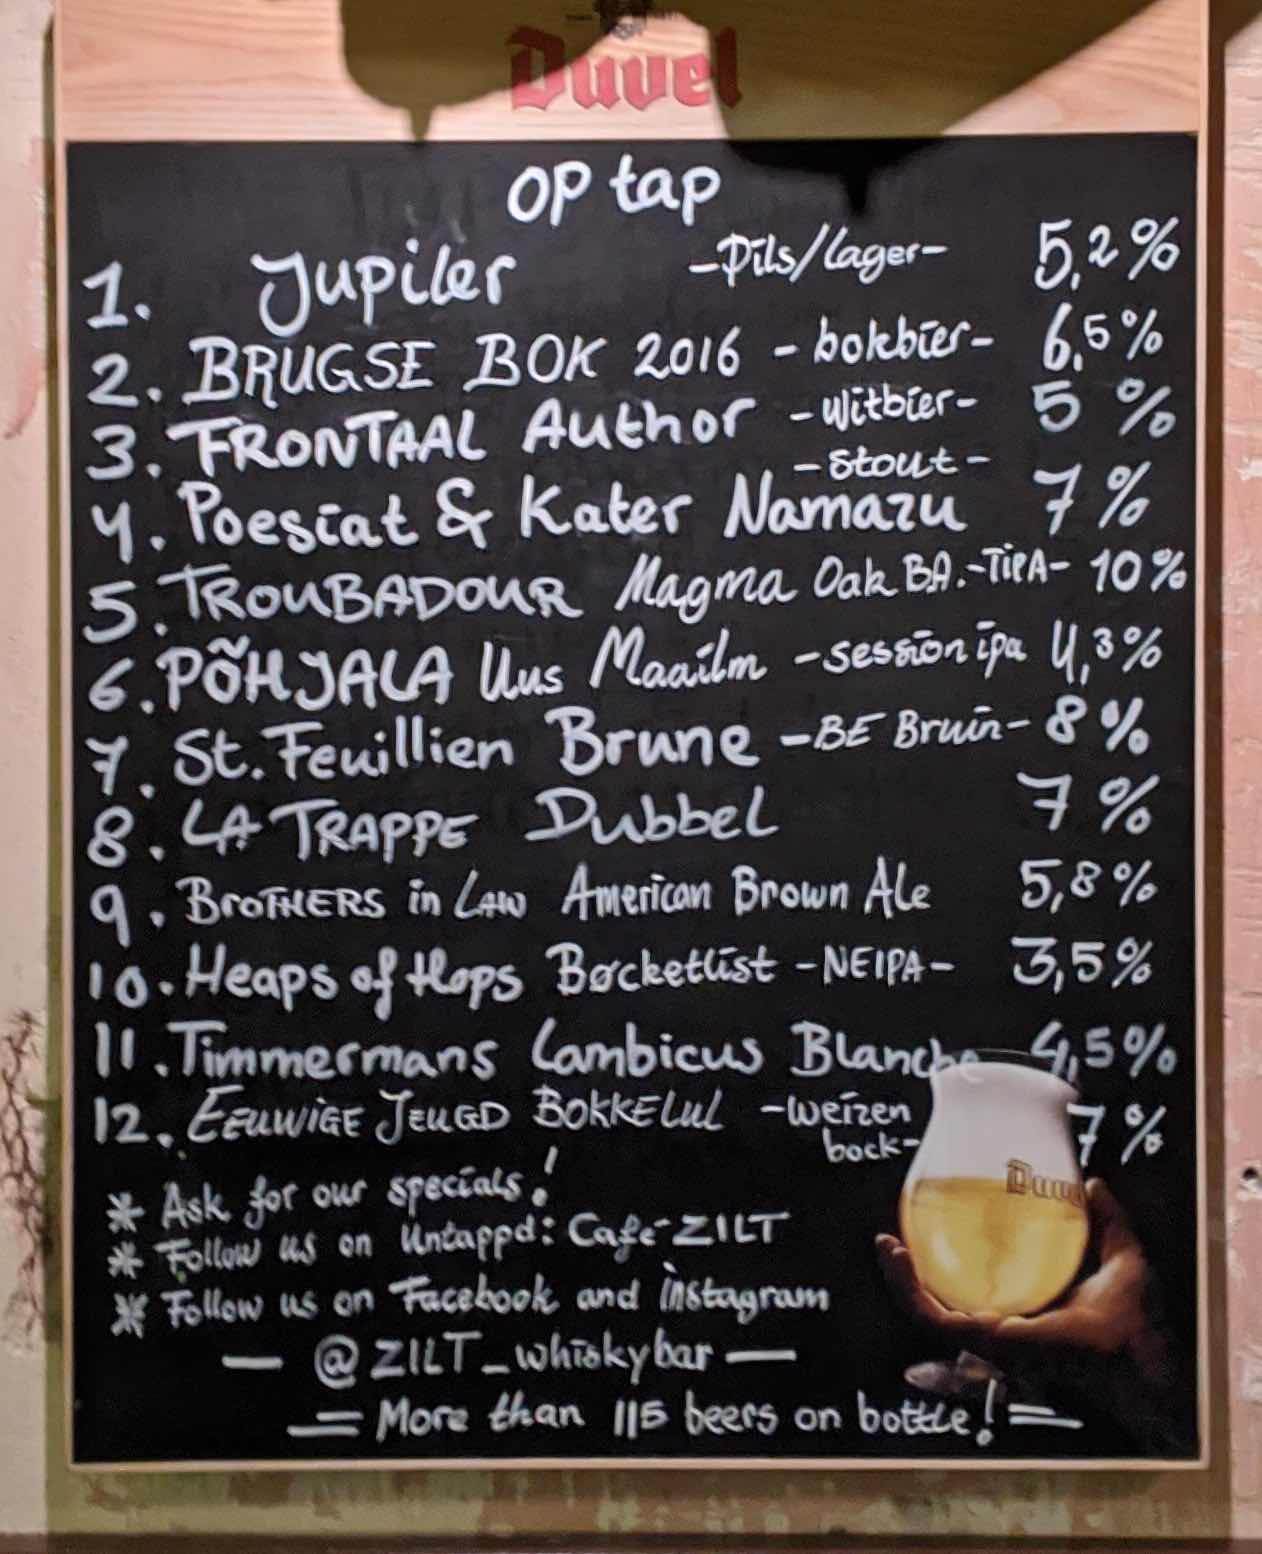 Duvel
op tap
1. Jupiler -Pils/lager- 5,2%
2. BRUGSE BOK 2016 -bokbier- 6,5%
3. FRONTAAL Author -witbier- 5 %
-stout-
4. Poesiat & Kater Namazu 7%
5. TROUBADOUR Magma Oak BA.-TIPA- 10%
6. PÕHJALA Uus Maailm -session ipa 4,3%
7. St. Feuillien Brune -BE Bruin- 8%
8. LA TRAPPE Dubbel 7%
9. BROTHERS in LAW American Brown Ale 5,8%
10. Heaps of Hops Bøcketlist -NEIPA- 3,5%
11. Timmermans Lambicus Blanche 4,5%
12. EEUWIGE JEUGD BOKKELUL -weizen 7%
bock-
* Ask for our specials!
* Follow us on Untappd: Café-ZILT
* Follow us on Facebook and instagram
— @ZILT_whiskybar —
= More than 115 beers on bottle! =
Duvel